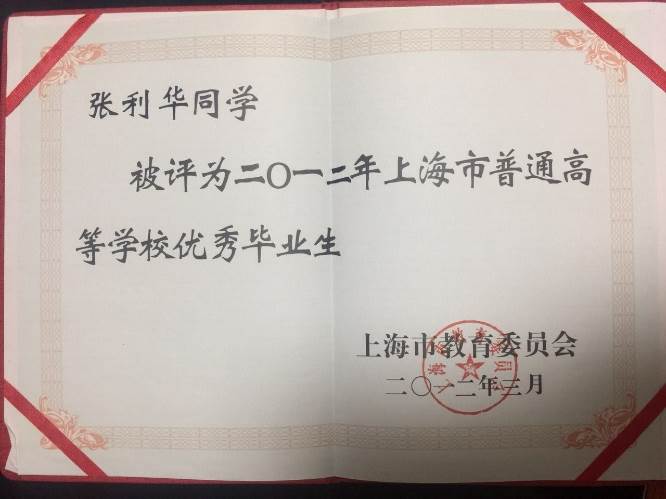 张利华同学
被评为二〇一二年上海市普通高
等学校优秀毕业生
上海市教育委员会
二〇一二年三月